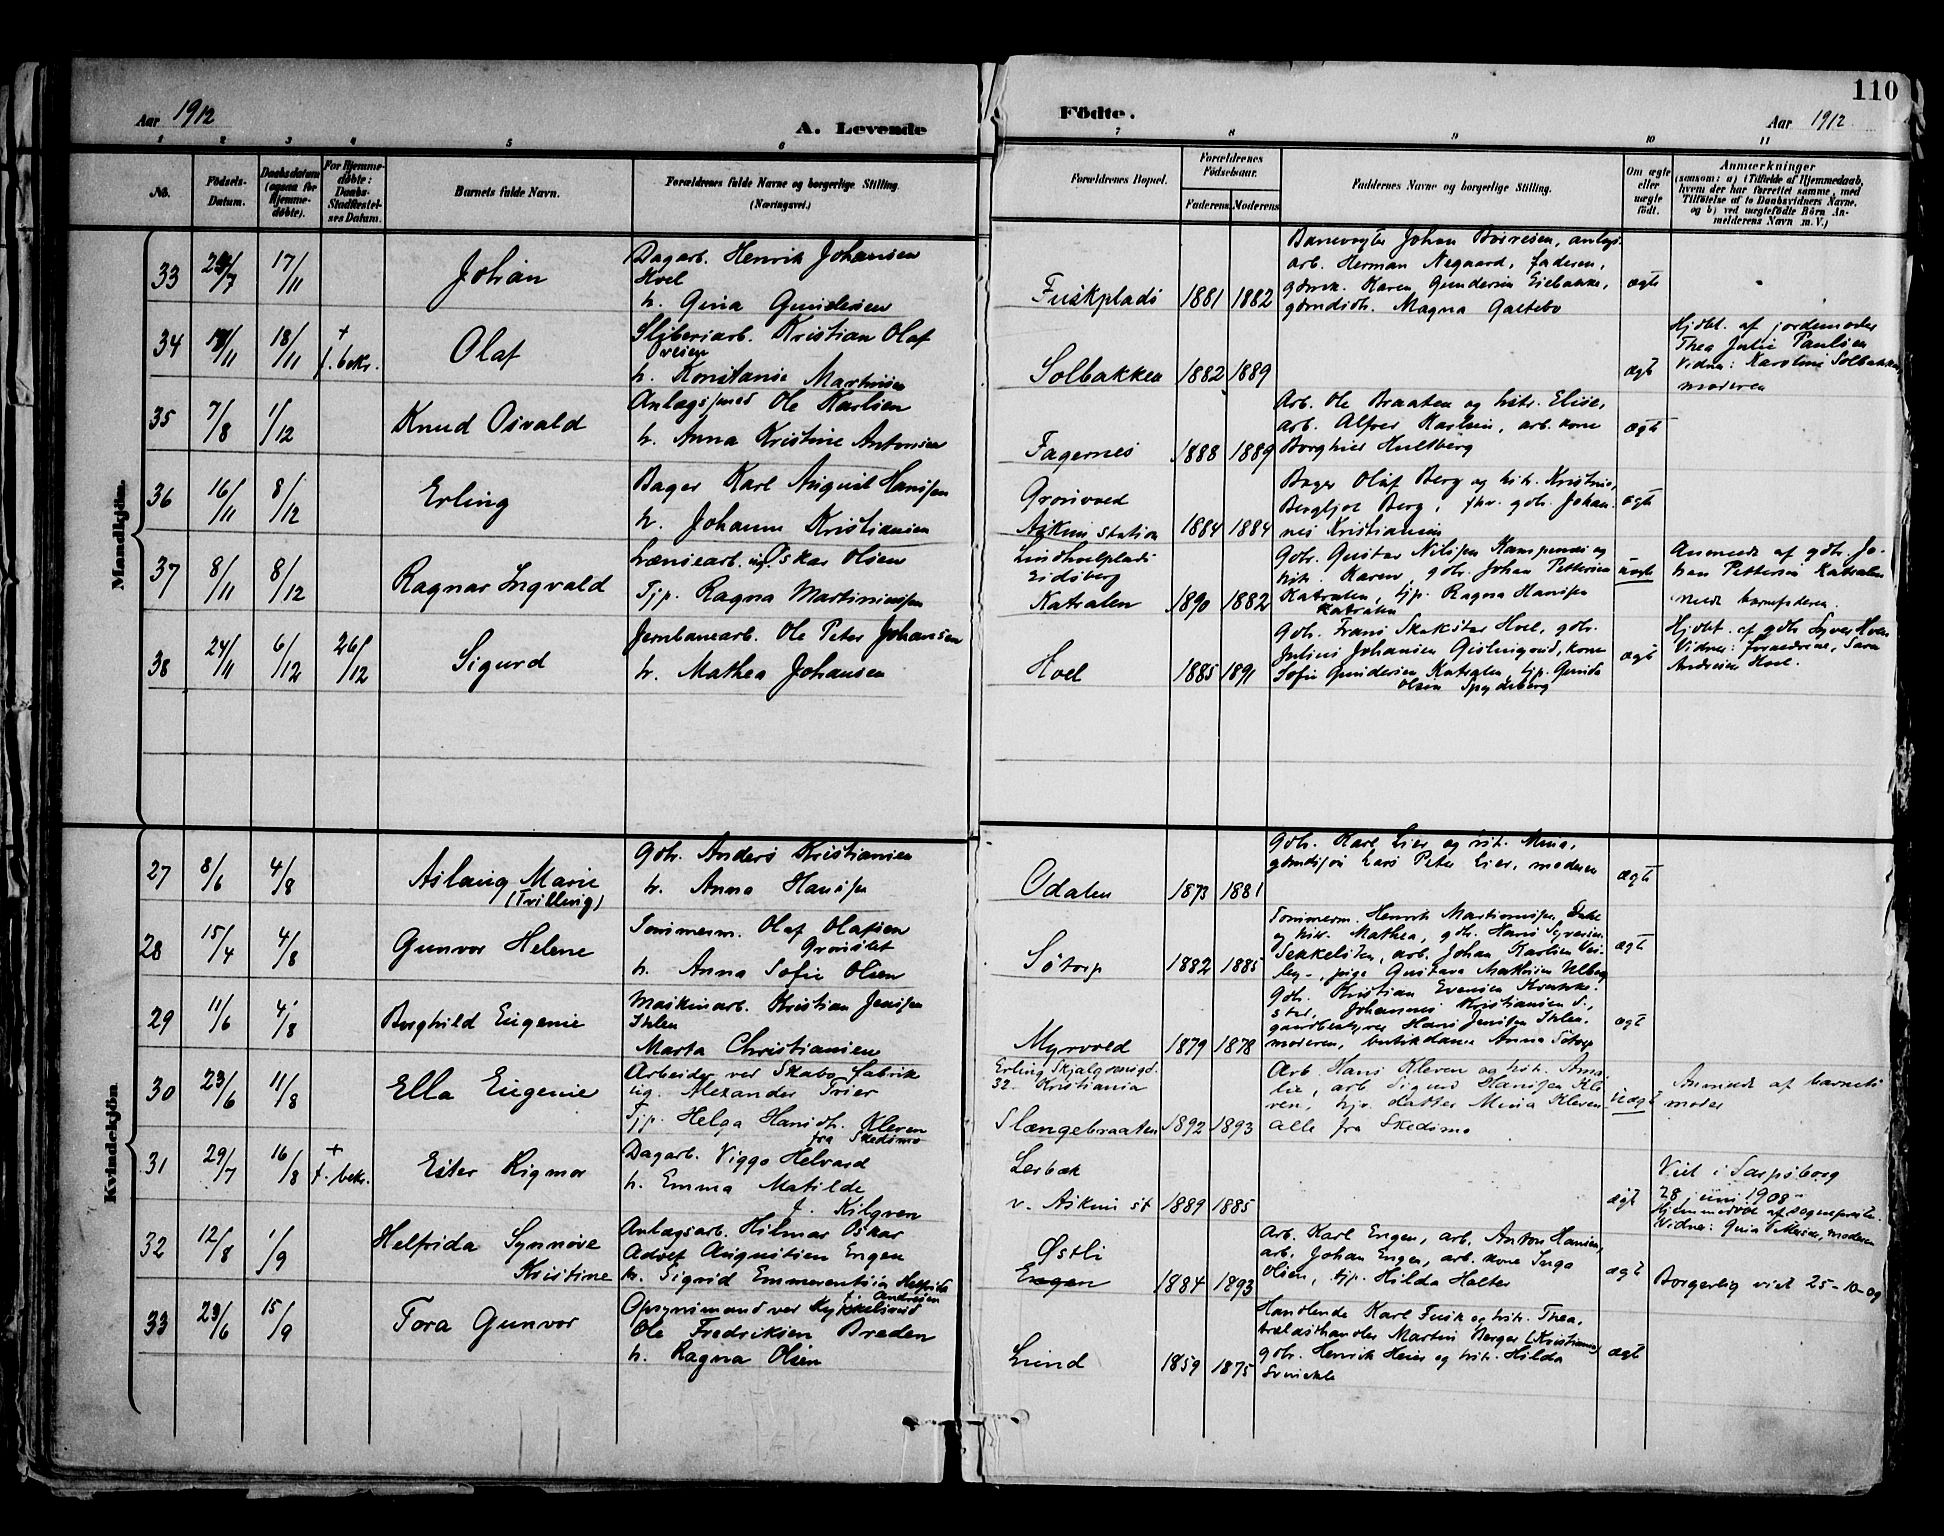 110
Aar 1912
A. Levende
Födte.
Aar 1912
1 2 3 4 5 6 7 8 9 10 11
No.
Födsels-
Datum.
Daabsdatum
(ogsaa for
Hjemme-
döbte).
For Hjemme-
döbte:
Daabs-
Stadfæstel-
ses Datum.
Barnets fulde Navn.
Forældrenes fulde Navne og borgerlige Stilling.
(Næringsvei.)
Forældrenes Bopæl.
Forældrenes
Födselsaar.
Faderens Moderens
Faddernes Navne og borgerlige Stilling.
Om ægte
eller
uægte
født.
Anmærkninger
(saasom: a) i Tilfælde af Hjemmedaab,
hvem der har forrettet samme, med
Tilföielse af to Daabsvidners Navne,
og b) ved uægtefödte Börn An-
melderens Navn m. V.)
Mandkjön.
33 /7 17/11
Johan
Dagarb. Henrik Johansen
Hoel
h. Gina Gundersen
Fuskplads 1881 1882
Banevogter Johan Børresen, anlægs-
arb. Herman Negaard, faderen,
gdmsk. Karen Gundersen Eiebakke,
gdmdtr. Magna Galtebo
ægte
34 /11 18/11 + f. bekr.
Olaf
Sliberiarb. Kristian Olaf
h. Konstanse Martinsen
Solbakken 1882 1889
ægt
Hjdbt. af jordemoder
Thea Julie Paulsen
Vidner: Karoline Solbakken,
moderen
35 7/8 1/12
Knud Osvald
Anlægssmed Ole Karlsen
h. Anna Kristine Antonsen
Fagernes 1888 1889
Arb. Ole Braaten og hstr. Elise,
arb. Alfred Karlsen, arb. kone
Borghild Hultberg
ægte
36 16/11 8/12
Erling
Bager Karl August Hansen
h. Johanne Kristiansen
Gronvold
Askim station 1884 1884
Bager Olaf Berg og hstr. Kristine,
Bergljot Berg, fhv. gdbr. Johan-
nes Kristiansen
ægte
37 8/11 8/12
Ragnar Ingvald
Lænsearb. ug. Oskar Olsen
Tjp. Ragna Martiniussen
Lindholplads
Eidsberg
Katralen 1890 1882
Gdbr. Gustav Nilsen Kampenæs og
hstr. Karen, gdbr. Johan Pettersen
Katralen, tjp. Ragna Hansen
Katralen
uægte
Anmeldt af gdbr. Jo-
han Pettersen Katralen
38 24/11 6/12 26/12
Sigurd
Jernbanearb. Ole Peter Johansen
h. Mathea Johansen
Hoel 1885 1891
Gdbr. Frans Skakstad Hoel, gdbr.
Julius Johansen Gislingrud, kone
Sofie Gundersen Katralen, tjp. Gunda
Olsen Spydeberg
ægt
Hjdbt. af gdbr Syver Hoel
Vidner: forældrene, Sara
Andreasen Hoel.
Kvindekjön.
27 8/6 4/8
Aslaug Marie
(Tvilling)
Gdbr. Anders Kristiansen
h. Anna Hansen
Odalen 1873 1881
Gdbr. Karl Lier og hst. Mina,
gdmdssøn Lars Peter Lier, moderen
ægte
28 15/4 4/8
Gunvor Helene
Tømmerm. Olaf Olafsen
Gronslet
h. Anna Sofie Olsen
Sötorp 1882 1885
Tømmerm. Henrik Martinussen
og hstr. Mathea, gdbr. Hans Syversen
Sekkelsten, arb. Johan Karlsen
pige Gustava Markusen
ægt
29 11/6 4/8
Borghild Eugenie
Maskinarb. Kristian Jensen
Ihlen
Marta Christiansen
Myrvold 1879 1878
Gdbr. Kristian Evensen
Johannes Kristiansen S.,
gaardbestyrer Hans Jensen Ihlen,
moderen, butikdame Anna Sötorp
ægt
30 23/6 11/8
Ella Eugenie
Arbeider ved Skabo fabrik
ug. Alexander Trier
Tjp. Helga Hansdt. Kleven
fra Skedsmo
Erling Skjalgsønsgd.
32 Kristiania
Slængebraaten 1892 1893
Arb. Hans Kleven og hstr. Ama-
lie, arb. Sigurd Hansen Kle-
ven, hjv. datter Mina Kleven
alle fra Skedsmo
uægt
Anmeldt af barnets
moder
31 29/7 16/8 + f. bekr.
Ester Rigmor
Dagarb. Viggo Helvard
h. Emma Matilde
f. Kilgren
Lerbæk
v. Askim st 1889 1885
ægt
Viet i Sarpsborg
28 juni 1908.
Hjemmedøbt af sogneprsten.
Vidner: Gina Pettersen, moderen
32 12/8 1/9
Helfrida Synnøve
Kristine
Anlægsarb. Hilmar Oskar
Adolf Augustsen Engen
h. Sigrid Emmerentsia Helfrida
f. Andresen
Østli
Engen 1884 1893
Arb. Karl Engen, arb. Anton Hansen,
arb. Johan Engen, arb. kone Inga
Olsen, tjp. Hilda Holter
ægt
Borgerlig viet 25-10-09
33 23/6 15/9
Tora Gunvor
Opsynsmand ved Kykkelsrud
Ole Fredriksen Braden
h. Ragna Olsen
Lund 1859 1875
Handlende Karl Fusk og hstr. Thea,
trælasthandler Martin Berger (Kristiania)
gdbr. Henrik Heier og hstr. Hilda
ægt